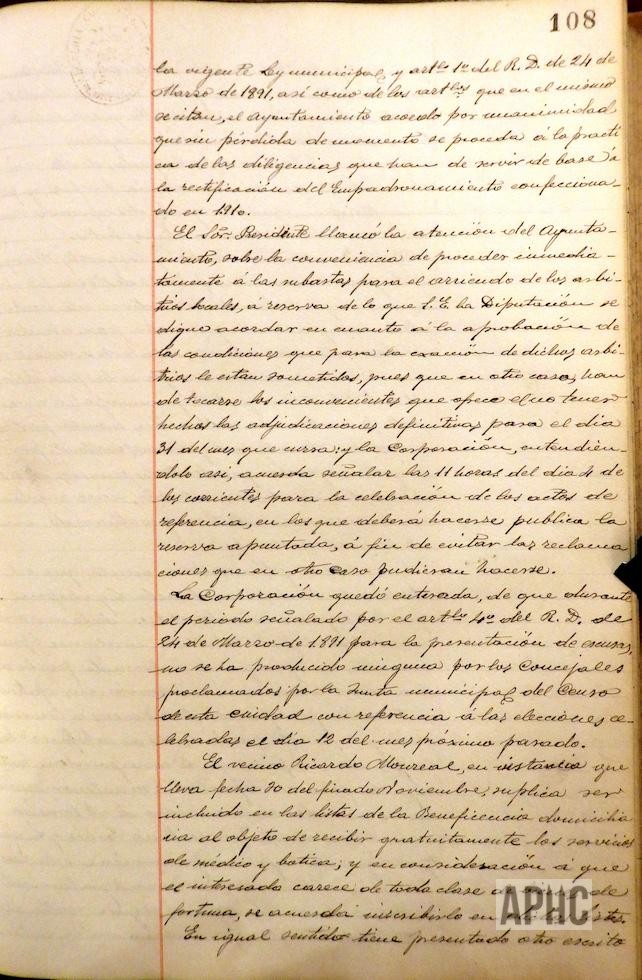 108
la vigente Ley municipal, y artlo 1º del R. D. de 24 de
Marzo de 1891, asi como de los artlos que en el mismo
se citan, el Ayuntamiento acordo por unanimidad
que sin pérdida de momento se proceda á la practi
ca de las diligencias que han de servir de base á
la rectificación del Empadronamiento confecciona-
do en 1910.
El Sor. Presidente llamó la atención del Ayunta-
miento, sobre la conveniencia de proceder inmedia-
tamente á las subastas para el arriendo de los arbi-
trios locales, á reserva de lo que S. E. la Diputación se
digne acordar en cuanto á la aprobación de
las condiciones que para la exacción de dichos arbi-
trios le estan sometidos, pues que en otro caso, han
de tocarse los inconvenientes que ofrece el no tener
hechas las adjudicaciones definitivas para el dia
31 del mes que cursa; y la Corporación, entendien-
dolo asi, acuerda señalar las 11 horas del dia 4 de
los corrientes para la celebración de los actos de
referencia, en los que deberá hacerse publica la
reserva apuntada, á fin de evitar las reclama
ciones que en otro caso pudieran hacerse.
La Corporación quedó enterada, de que durante
el periodo señalado por el artlo 4º del R. D. de
24 de Marzo de 1.891 para la presentación de escusas,
no se ha producido ninguna por los Concejales
proclamados por la Junta municipal del Censo
de esta ciudad con referencia á las elecciones ce-
lebradas el dia 12 del mes próximo pasado.
El vecino Ricardo Monreal, en instancia que
lleva fecha 30 del finado Noviembre, suplica ser
incluido en las listas de la Beneficencia domicilia
ria al objeto de recibir gratuitamente los servicios
de médico y botica; y en consideración á que
el interesado carece de toda clase de de
fortuna, se acuerda inscribirlo en
En igual sentido tiene presentado otro escrito
APHC